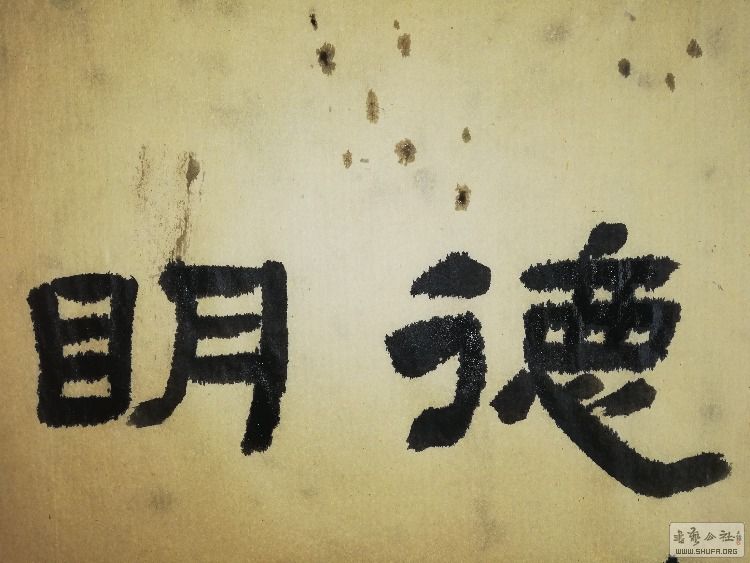 明德
书艺公社
WWW.SHUFA.ORG